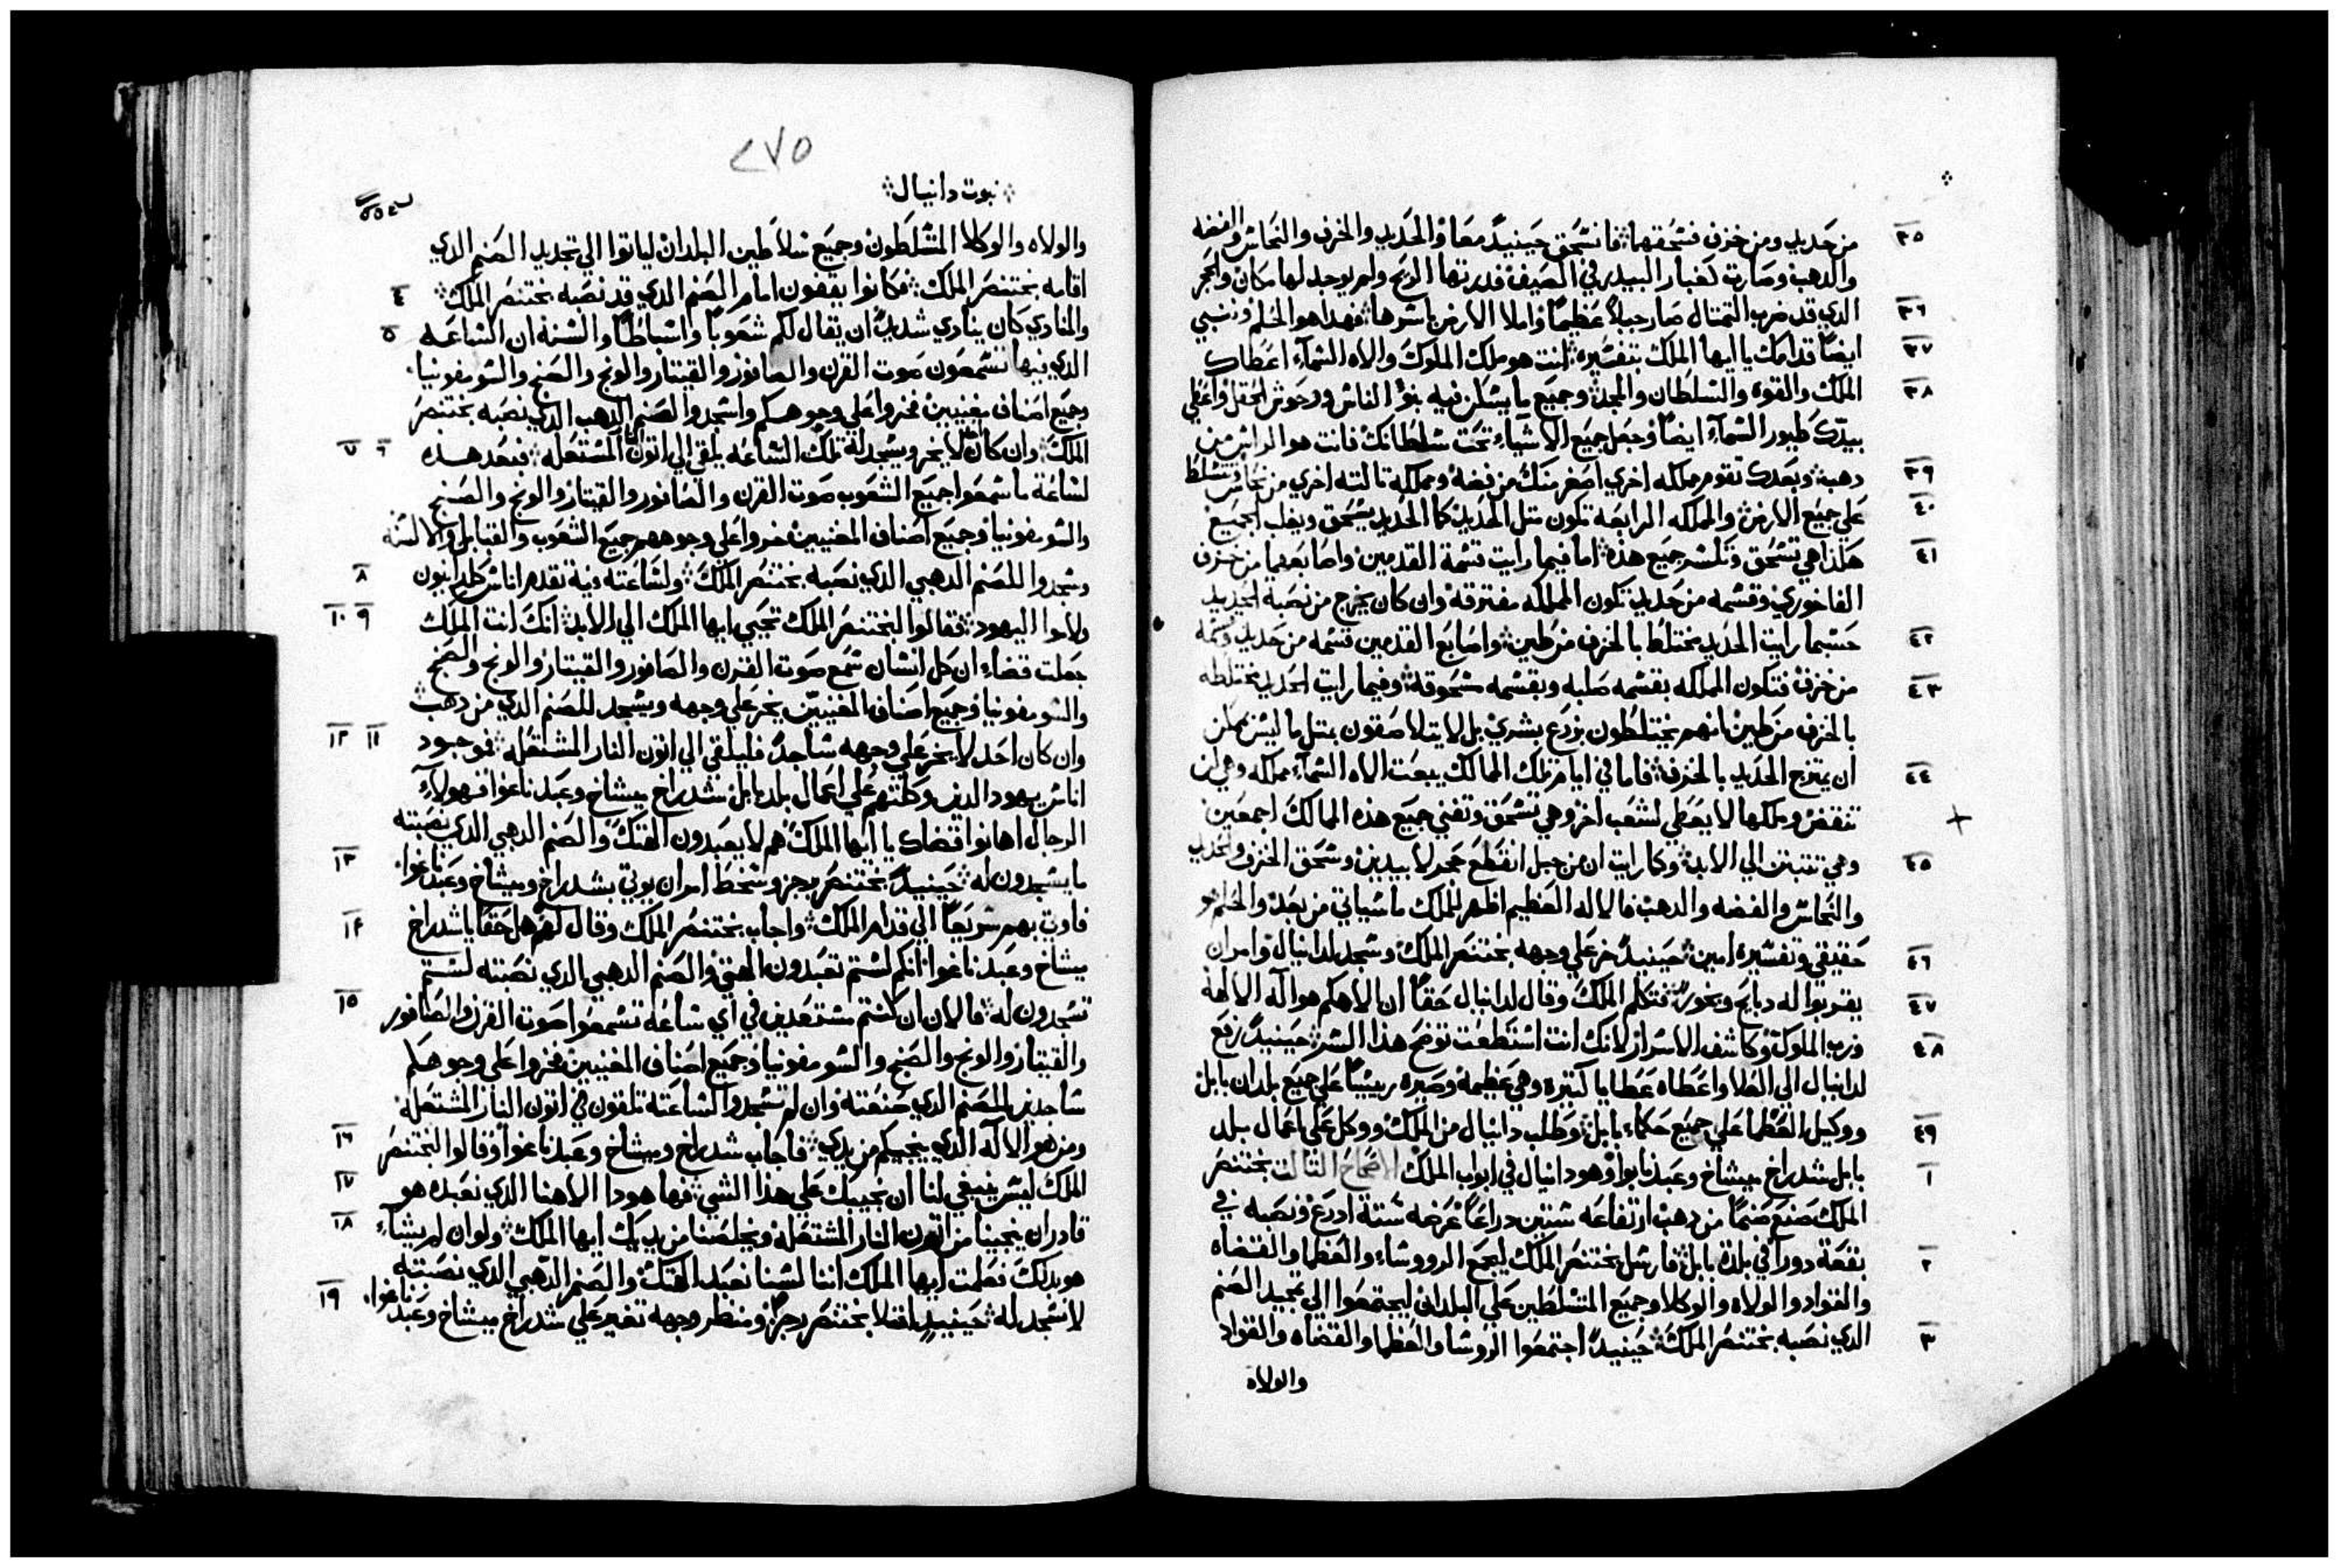 ٣٥ من حديد ومن خزف فسحقهما فانسحق حينيدٍ معاً الحديد والخزف والنحاس والفضه
والدهب وصارت كغبار البيدر في الصيف فدرتها الريح ولم يوجد لها مكان والحجر
٣٦ الدي قد ضرب التمتال صار جبلاً عظيماً واملا الارض باسرها فهدا هو الحلم وننبي
٣٧ ايضاً قدامك يا ايها الملك بتفسيره انت هو ملك الملوك والاه السمآء اعطاك
٣٨ الملك والقوه والسلطان والمجد وجميع ما يسكن فيه بنوا الناس ووحوش الحقل واعطي
بيدك طيور السمآء ايضاً وجعل جميع الاشياء تحت سلطانك فانت هو الراس من
٣٩ دهب وبعدك تقوم مملكه اخري اصغر منك من فضه ومملكه تالته اخري من نحاس تتسلط
٤٠ علي جميع الارض والمملكه الرابعه تكون متل الحديد كما الحديد يسحق ويغلب الجميع
٤١ هكذا هي تسحق وتكسر جميع هذه اما فيما رايت قسمة القدمين واصابعهما من خزف
الفاخوري وقسمه من حديد تكون المملكه مفترقة وان كان يخرج من نصبة الحديد
٤٢ حسبما رايت الحديد يختلط بالخزف من طين واصابع القدمين قسمه من حديد وقسمه
٤٣ من خزف فتكون المملكه بقسمه صلبه وبقسمه مسحوقة وفيما رايت الحديد يختلطه
بالخزف من طين انهم يختلطون بزرع بشري بل لا يتلاصقون بمتل ما ليس يمكن
٤٤ ان يمتزج الحديد بالخزف فاما في ايام تلك الممالك يبعت الاه السمآء مملكه وهي لن
تنقض وملكها لا يعطي لشعب اخر وهي تسحق وتفني جميع هذه الممالك اجمعين
٤٥ وهي تتبت الي الابد وكما رايت ان من جبل انقطع حجر لا بيدين وسحق الخزف والحديد
والنحاس والفضه والدهب فالاله العظيم اظهر للملك ما سياتي من بعد والحلم هو
٤٦ حقيقي وتفسيره امين حينيدٍ خر علي وجهه بختنصر الملك وسجد لدانيال وامر ان
٤٧ يقربوا له دبايح وبخور فتكلم الملك وقال لدانيال حقاً ان الاهكم هو اله الالهة
٤٨ ورب الملوك وكاشف الاسرار لانك انت استطعت توضح هذا السر حينيدٍ رفع
لدانيال الي العلا واعطاه عطايا كتيره وهي عظيمه وصيره رييساً علي جميع بلدان بابل
٤٩ ووكيل العظما علي جميع حكماء بابل وطلب دانيال من الملك ووكل علي اعمال بلد
١ بابل شدراخ ميشاخ وعبد نابوا وهو دانيال في ابواب الملك الاصحاح التالت بختنصر
الملك صنع صنماً من دهب ارتفاعه ستين دراعاً عرضه ستة ادرع ونصبه في
٢ بقعة دورا في بلدة بابل فارسل بختنصر الملك ليجمع الرووساء والعظما والقضاه
والقواد والولاه والوكلا وجميع المتسلطين علي البلدان ليجتمعوا الي تجديد الصنم
٣ الدي نصبه بختنصر الملك حينيدٍ اجتمعوا الروسا والعظما والقضاه والقواد
والولاه
٢٧٥
نبوت دانيال
والولاه والوكلا المتسلطون وجميع سلاطين البلدان لياتوا الي تجديد الصنم الدي
٤ اقامه بختنصر الملك فكانوا يقفون امام الصنم الدي قد نصبه بختنصر الملك
٥ والمنادي كان ينادي شديداً ان يقال لكم شعوباً واسباطاً والسنة ان الساعه
الدي فيها تسمعون صوت القرن والصافور والقيتار والونج والصنج والسومفونيا
وجميع اصناف مغنيين فخروا علي وجوهكم واسجدوا لصنم الدهب الدي نصبه بختنصر
٦ ٧ الملك وان كان لا يخر ويسجد له تلك الساعه يلقي الي اتون المشتعله فبعد هده
لساعة ما سمعوا جميع الشعوب صوت القرن والصافور والقيتار والونج والصنج
والسومفونيا وجميع اصناف المغنيين خروا علي وجوههم جميع الشعوب والقبايل والالسنه
٨ وسجدوا للصنم الدهبي الدي نصبه بختنصر الملك ولساعته فية تقدم اناس كلدانيون
٩ ١٠ ولاموا اليهود فقالوا لبختنصر الملك تحيي ايها الملك الي الابد انك انت الملك
جعلت قضاء ان كل انسان سمع صوت القرن والصافور والقيتار والونج والصنج
والسومفونيا وجميع اصناف المغنيين يخر علي وجهه ويسجد للصنم الدي من دهب
١١ ١٢ وان كان احد لا يخر علي وجهه ساجداً فليلقي الي اتون النار المشتعله فوجود
اناس يهود الدين وكلتهم علي اعمال بلد بابل شدراخ ميشاخ وعبد ناغوا فهولآء
الرجال اهانوا قضاك يا ايها الملك هم لا يعبدون الهتك والصنم الدهبي الدي نصبته
١٣ ما يسجدون له حينيدٍ بختنصر برجز وسخط امر ان يوتي بشدراخ وميشاخ وعبد ناغوا
١٤ فاوتي بهم سريعاً الي قدام الملك واجاب بختنصر الملك وقال لهم هل حقاً يا شدراخ
ميشاخ وعبد ناغوا انكم لستم تعبدون الهتي والصنم الدهبي الدي نصبته لستم
١٥ تسجدون له فالان ان كنتم مستعدين في اي ساعه تسمعوا صوت القرن والصافور
والقيتار والونج والصنج والسومفونيا وجميع اصناف المغنيين فخروا علي وجوهكم
ساجدين للصنم الدي صنعته وان لم تسجدوا لساعته تلقون في اتون النار المشتعله
١٦ ومن هو الاله الدي ينجيكم من يدي فاجاب شدراخ وميشاخ وعبد ناغوا وقالوا لبختنصر
١٧ الملك ليس ينبغي لنا ان نجيبك علي هذا الشي فها هودا الاهنا الدي نعبده هو
١٨ قادر ان ينجينا من اتون النار المشتعله ويخلصنا من يديك ايها الملك ولو ان لم يشآء
هو بدلك فعلمت ايها الملك اننا لسنا نعبد الهتك والصنم الدهبي الدي نصبته
١٩ لا نسجد له حينيدٍ امتلا بختنصر رجزاً ومنظر وجهه تغير علي شدراخ ميشاخ وعبد ناغوا